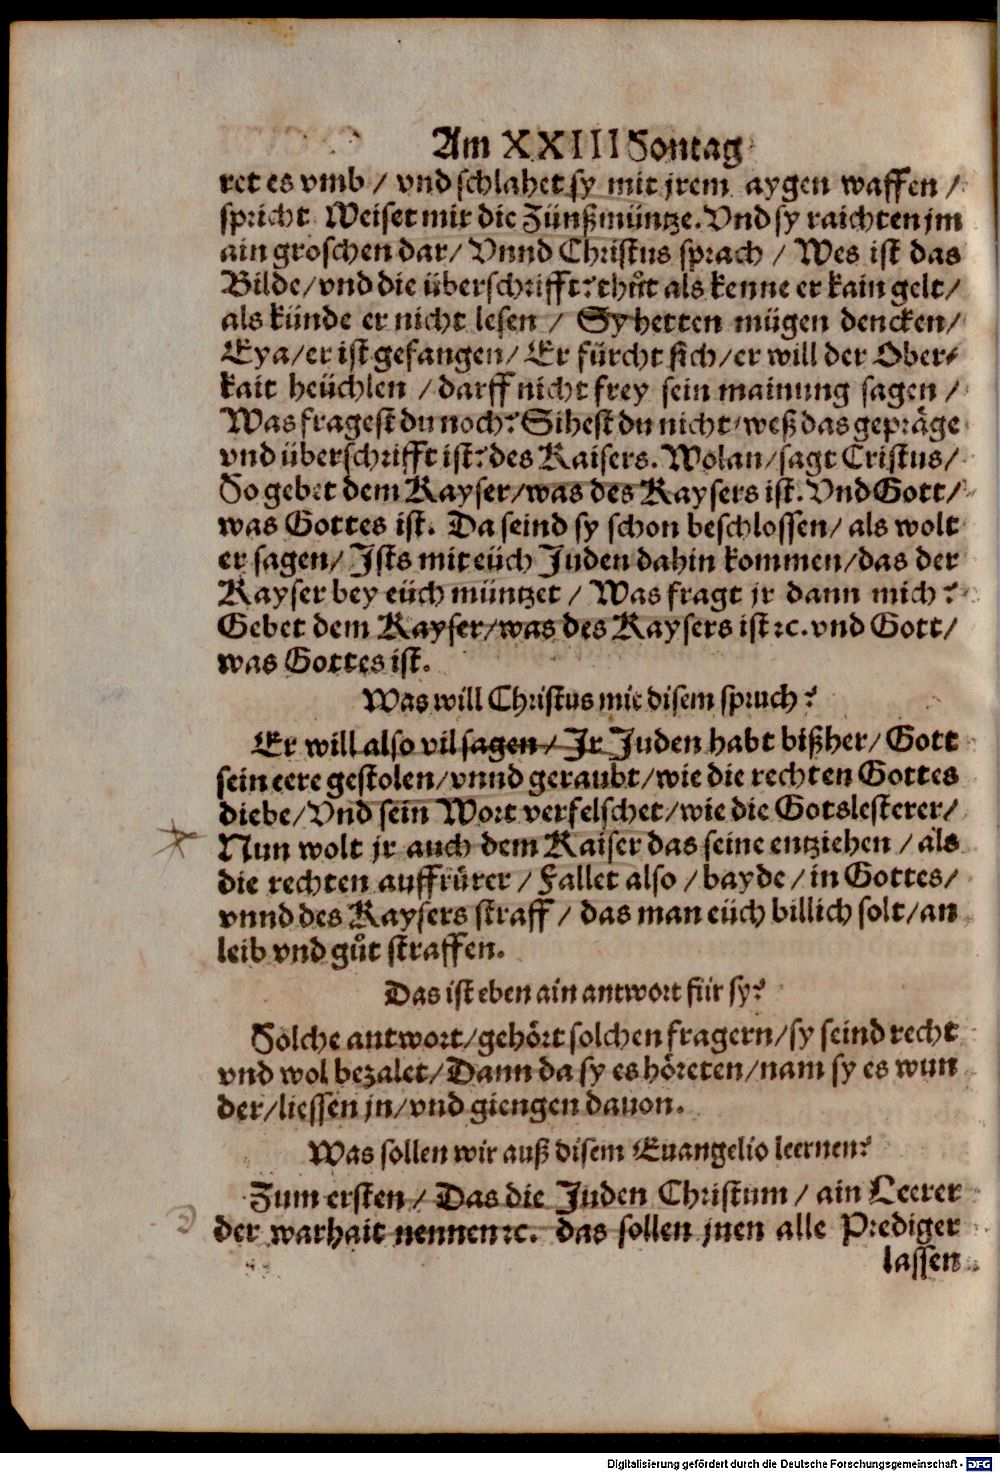 Am XXIII Sontag
ret es vmb / vnd schlahet sy mit jrem aygen waffen /
spricht Weiset mir die Zünßmüntze. Vnd sy raichten jm
ain groschen dar / Vnnd Christus sprach / Wes ist das
Bilde / vnd die überschrifft? thůt als kenne er kain gelt /
als künde er nicht lesen / Sy hetten mügen dencken /
Eya / er ist gefangen / Er fürcht sich / er will der Ober⸗
kait heüchlen / darff nicht frey sein mainung sagen /
Was fragest du noch? Sihest du nicht / weß das gepräge
vnd überschrifft ist? des Kaisers. Wolan / sagt Cristus /
So gebet dem Kayser / was des Kaysers ist. Vnd Gott /
was Gottes ist. Da seind sy schon beschlossen / als wolt
er sagen / Ists mit eüch Juden dahin kommen / das der
Kayser bey eüch müntzet / Was fragt jr dann mich?
Gebet dem Kayser / was des Kaysers ist ꝛc. vnd Gott /
was Gottes ist.
Was will Christus mit disem spruch?
Er will also vil sagen / Jr Juden habt bißher / Gott
sein eere gestolen / vnnd geraubt / wie die rechten Gottes
diebe / Vnd sein Wort verfelschet / wie die Gotslesterer /
Nun wolt jr auch dem Kaiser das seine entziehen / als
die rechten auffrürer / Fallet also / bayde / in Gottes /
vnnd des Kaysers straff / das man eüch billich solt / an
leib vnd gůt straffen.
Das ist eben ain antwort für sy?
Solche antwort / gehört solchen fragern / sy seind recht
vnd wol bezalet / Dann da sy es höreten / nam sy es wun
der / liessen jn / vnd giengen dauon.
Was sollen wir auß disem Euangelio leernen?
Zum ersten / Das die Juden Christum / ain Leerer
der warhait nennen ꝛc. das sollen jnen alle Prediger
lassen
Digitalisierung gefördert durch die Deutsche Forschungsgemeinschaft - DFG